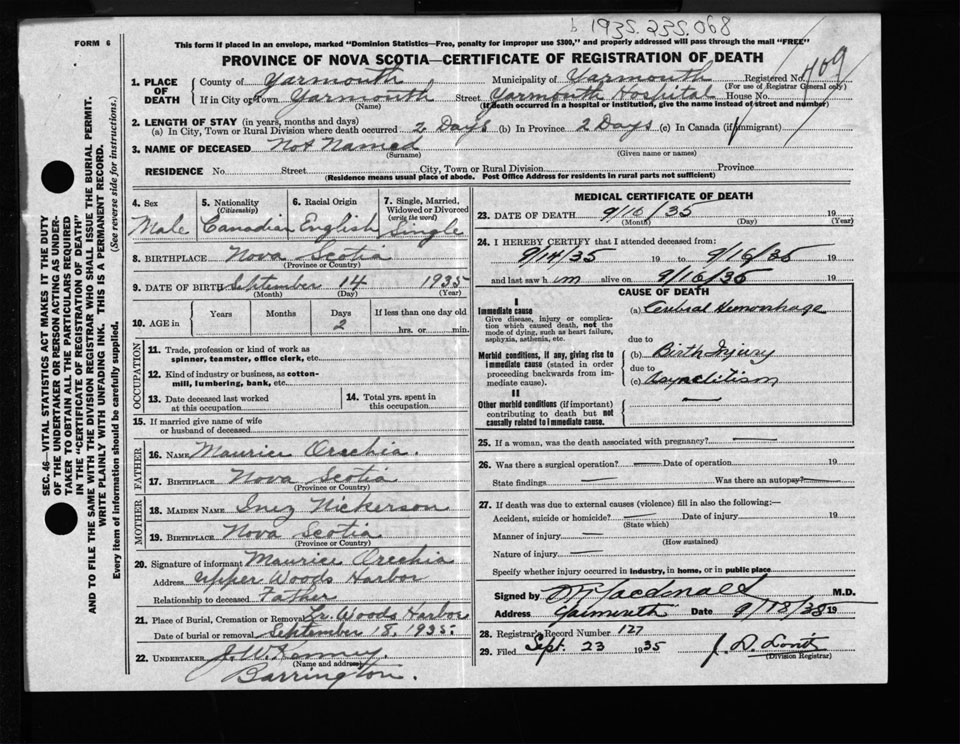 b 1935.235.068
FORM 6
This form if placed in an envelope, marked "Dominion Statistics—Free, penalty for improper use $300," and properly addressed will pass through the mail "FREE"
PROVINCE OF NOVA SCOTIA—CERTIFICATE OF REGISTRATION OF DEATH
1. PLACE OF DEATH County of Yarmouth Municipality of Yarmouth Registered No. 409
(For use of Registrar General only)
If in City or Town Yarmouth Street Yarmouth Hospital House No.
(Name) (If death occurred in a hospital or institution, give the name instead of street and number)
2. LENGTH OF STAY (in years, months and days)
(a) In City, Town or Rural Division where death occurred 2 Days (b) In Province 2 Days (c) In Canada (if immigrant)
3. NAME OF DECEASED Not Named
(Surname) (Given name or names)
RESIDENCE No. Street City, Town or Rural Division Province
(Residence means usual place of abode. Post Office Address for residents in rural parts not sufficient)
4. Sex 5. Nationality (Citizenship) 6. Racial Origin 7. Single, Married, Widowed or Divorced (write the word)
Male Canadian English Single
8. BIRTHPLACE Nova Scotia
(Province or Country)
9. DATE OF BIRTH September 14 1935
(Month) (Day) (Year)
10. AGE in Years Months Days If less than one day old
2 hrs. or min.
OCCUPATION
11. Trade, profession or kind of work as spinner, teamster, office clerk, etc.
12. Kind of industry or business, as cotton-mill, lumbering, bank, etc.
13. Date deceased last worked at this occupation
14. Total yrs. spent in this occupation
15. If married give name of wife or husband of deceased
FATHER
16. NAME Maurice Orechia
17. BIRTHPLACE Nova Scotia
(Province or Country)
MOTHER
18. MAIDEN NAME Inez Nickerson
19. BIRTHPLACE Nova Scotia
(Province or Country)
20. Signature of informant Maurice Orechia
Address Upper Woods Harbor
Relationship to deceased Father
21. Place of Burial, Cremation or Removal Lr. Woods Harbor
Date of burial or removal September 18, 1935.
22. UNDERTAKER J. W. Kenney,
(Name and address)
Barrington.
MEDICAL CERTIFICATE OF DEATH
23. DATE OF DEATH 9/16/35 19
(Month) (Day) (Year)
24. I HEREBY CERTIFY that I attended deceased from:
9/14/35 19 to 9/16/35 19
and last saw h im alive on 9/16/35 19
CAUSE OF DEATH
I
Immediate cause
Give disease, injury or complication which caused death, not the mode of dying, such as heart failure, asphyxia, asthenia, etc.
(a) Cerebral Hemorrhage
due to
Morbid conditions, if any, giving rise to immediate cause (stated in order proceeding backwards from immediate cause).
(b) Birth Injury
due to
(c)
II
Other morbid conditions (if important) contributing to death but not causally related to immediate cause.
25. If a woman, was the death associated with pregnancy?
26. Was there a surgical operation? Date of operation 19
State findings Was there an autopsy?
27. If death was due to external causes (violence) fill in also the following:—
Accident, suicide or homicide? Date of injury 19
(State which)
Manner of injury
(How sustained)
Nature of injury
Specify whether injury occurred in industry, in home, or in public place
Signed by Macdonald M.D.
Address Yarmouth Date 9/18/35 19
28. Registrar's Record Number 127
29. Filed Sept. 23 1935
(Division Registrar)
SEC. 46—VITAL STATISTICS ACT MAKES IT THE DUTY
OF THE UNDERTAKER OR PERSON ACTING AS UNDERTAKER
TO OBTAIN ALL THE PARTICULARS REQUIRED
IN THE "CERTIFICATE OF REGISTRATION OF DEATH"
AND TO FILE THE SAME WITH THE DIVISION REGISTRAR WHO SHALL ISSUE THE BURIAL PERMIT.
WRITE PLAINLY WITH UNFADING INK. THIS IS A PERMANENT RECORD.
Every item of information should be carefully supplied. (See reverse side for instructions.)